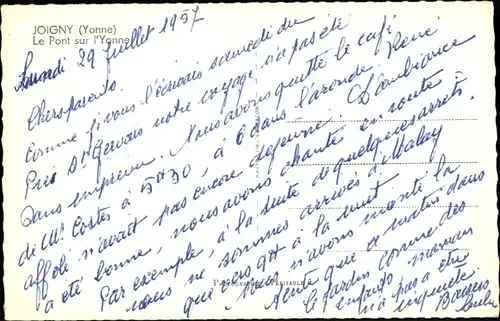 JOIGNY (Yonne)
Le Pont sur l'Yonne
Lundi 29 Juillet 1957
Chers parents.
Comme je vous l'écrivais samedi du
St Gervais notre voyage n'a pas été
sans imprévu. Nous avons quitté le café
de Mr Costes à 5H30, à 6 dans la ronde. René
affolé n'avait pas encore déjeuné. L'ambiance
a été bonne, nous avons chanté en route
Par exemple, à la suite de quelques arrêts
nous ne sommes arrivés à Malay
qui vers 9H à la nuit
Nous n'avons monté la
tente que ce matin dans
le jardin comme des
enfants. maman
n'a pas a être
inquiète
Baisers